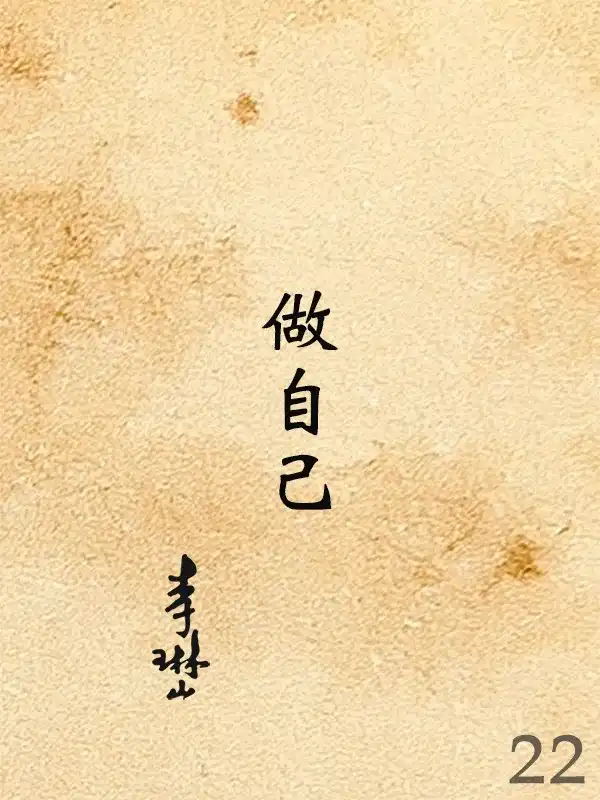 做自己
李琳山
22